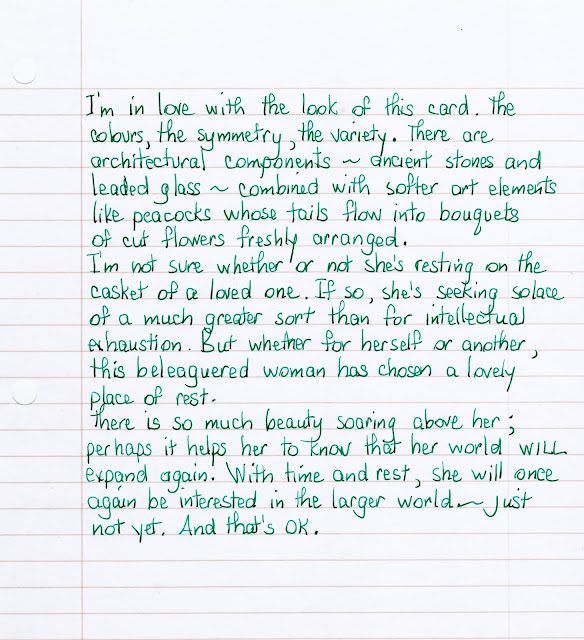 I'm in love with the look of this card. The
colours, the symmetry, the variety. There are
architectural components ~ ancient stones and
leaded glass ~ combined with softer art elements
like peacocks whose tails flow into bouquets
of cut flowers freshly arranged.
I'm not sure whether or not she's resting on the
casket of a loved one. If so, she's seeking solace
of a much greater sort than for intellectual
exhaustion. But whether for herself or another,
this beleaguered woman has chosen a lovely
place of rest.
There is so much beauty soaring above her;
perhaps it helps her to know that her world WILL
expand again. With time and rest, she will once
again be interested in the larger world ~ just
not yet. And that's OK.